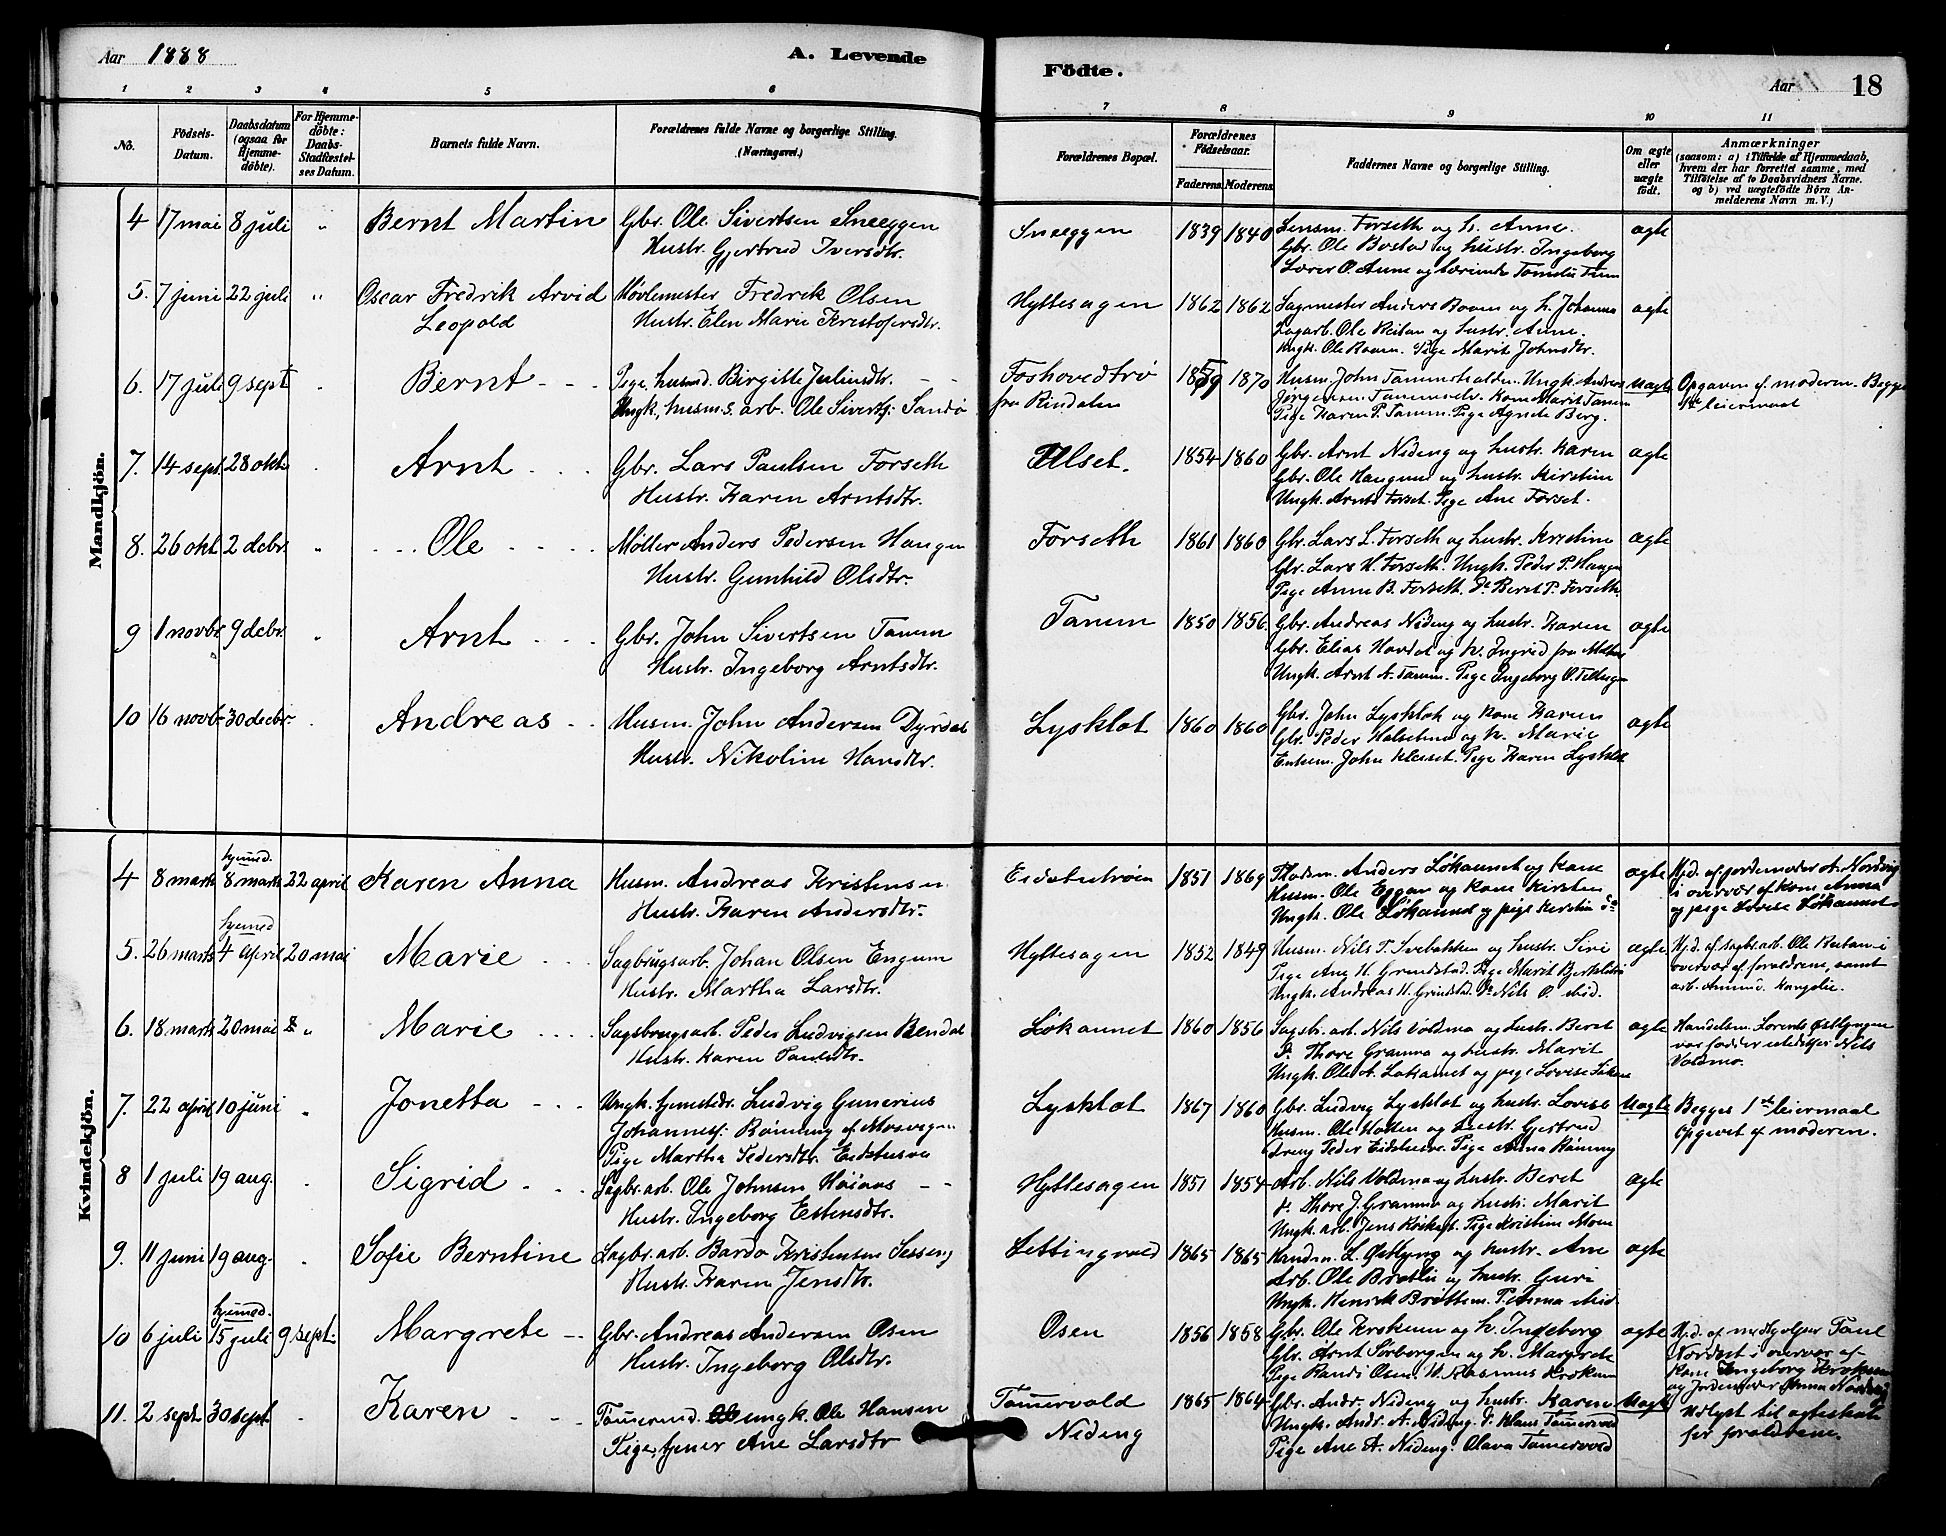 Aar 1888
A. Levende
Födte.
Aar
18
1 2 3 4 5 6 7 8 9 10 11
No.
Födsels-Datum.
Daabsdatum (ogsaa for Hjemmedöbte).
For Hjemmedöbte: Daabs-Stadfæstelses Datum.
Barnets fulde Navn.
Forældrenes fulde Navne og borgerlige Stilling. (Næringsvei.)
Forældrenes Bopæl.
Forældrenes Födselsaar.
Faderens. Moderens.
Faddernes Navne og borgerlige Stilling.
Om ægte eller uægte födt.
Anmærkninger (saasom: a) i Tilfælde af Hjemmedaab, hvem der har forrettet samme, med Tilföielse af to Daabsvidners Navne. og b) ved uægtefödte Börn Anmelderens Navn m. V.)
Mandkjön.
4 17 mai 8 juli " Bernt Martin Gbr. Ole Sivertsen Sneeggen
Hustr. Gjertrud Iversdtr.
Sneeggen 1839 1840 Lensm. Forseth og h. Anne.
Gbr. Ole Bostad og hustr. Ingeborg
Lærer O. Aune og
ægte
5. 7 juni 22 juli " Oscar Fredrik Arvid Leopold
Høvlemester Fredrik Olsen
Hustr. Elen Marie Kristofersdtr.
Hyttesagen 1862 1862 Sagmester Anders Roen og h. Johanna
Sagarb. Ole Reitan og hustr. Anne.
Ungk. Ole Roen. Pige Marit Johnsdtr.
ægte
6. 17 juli 9 sept Bernt
Pige, husmd. Birgitte Juliusdtr.
Ungk. husm.s. arb. Ole Sivertsj. Sandø
Foshovedtrø
fra Rindalen
1859 1870 Husm. John Tammshalden. Ungk. Anders
Jörgensen Kone Marit Tamm
Pige Karen P. Tamm. Pige Agnete Berg.
uægte
Opgaven af moderen. Begges
1ste leiermaal
7. 14 sept. 28 okt. Arnt
Gbr. Lars Paulsen Forseth
Hustr. Karen Arntsdtr.
Ulset. 1854 1860 Gbr. Arnt Nideng og hustr. Karen
Gbr. Ole Haugum og hustr. Kirstine
Ungk. Arnt Forset. Pige Ane Forset.
ægte
8. 26 okt. 2 debr. " Ole
Møller Anders Pedersen Haugen
Hustr. Gunhild Olsdtr.
Forseth 1861 1860 Gbr. Lars L. Forseth og hustr. Kristine
Gbr. Lars H. Forseth. Ungk. Peder P. Haugen
Pige Anne B. Forseth. Do Beret P. Forseth.
ægte
9 1 novbr. 9 debr. " Arnt
Gbr. John Sivertsen Tamm
Hustr. Ingeborg Arntsdtr.
Tamm 1850 1856. Gbr. Andreas Nideng og hustr. Karen
Gbr. Elias Hovdet og h. Ingrid fra
Ungk. Arnt A. Tamm. Pige Ingeborg O.
ægte
10 16 novbr. 30 decbr. Andreas
Husm. John Andersen Dyrdal
Hustr. Nikoline Hansdtr.
Lysklæt 1860 1860 Gbr. John Lysklæt og kone Karen
Gbr. Peder Halsetmo og h. Marie
John Pige Karen Lysklæt
ægte
Kvindekjön.
4 8 marts hjemmed. 8 marts 22 april Karen Anna
Husm. Andreas Kristensen
Hustr. Karen Andersdtr.
1851 1869 Anders Løkaunet og kone
Husm. Ole Eggan og kone Kirsten
Ungk. Ole Løkaunet og pige Kirstin do
ægte
Hj.d. af jordemoder A. Nordvig
i overvær af kone Anna
og pige Lovise Løkaunet
5. 26 marts hjemmed 4 april 20 mai Marie
Sagbrugsarb. Johan Olsen Engum
Hustr. Martha Larsdtr.
Hyttesagen 1852 1849 Husm. Nils T. Svebakken og hustr. Siri
Pige Ane H. Grindstad. Pige Marit
Ungk. Andreas H. Grindstad. Do Nils O. Mid.
ægte
Hj.d. af sagbr.arb. Ole Reitan i
overvær af forældrene, samt
arb. Amund.
6. 18 marts 20 mai " Marie
Sagbrugsarb. Peder Ludvigsen Rendal
Hustr. Karen Paulsdtr.
Løkaunet 1860 1856 Sagbr. arb. Nils Voldmo og hustr. Beret
Do Thore Gramo og hustr. Marit
Ungk. Ole A. Løkaunet og pige Lovise Løkau
ægte
Handelsm. Lorents Østlyngen
var fadder istedetfor Nils
Voldmo.
7. 22 april 10 juni " Jonetta
Ungk. Ludvig Gunerius
Johannesj. Rönning af Mosvigen
Pige Martha Pedersdtr. Eidstuva
Lysklæt 1867 1860 Gbr. Ludvig Lysklæt og hustr. Lovise
Husm. Ole Holten og hustr. Gjertrud
Dreng Peder Eidstuva. Pige Anna Rönning
uægte
Begges 1ste leiermaal
opgivet af moderen.
8 1 juli 19 aug. Sigrid
Sagbr. arb. Ole Johnsen Høiaas
Hustr. Ingeborg Estensdtr.
Hyttesagen 1851 1854 Arb. Nils Voldmo og hustr. Beret
Do Thore J. Gramo og hustr. Marit
Ungk. arb. Jens Pige Kristine Moen
ægte
9. 11 juni 19 aug. Sofie Berntine
Sagbr. arb. Bardo Kristensen Sesseng
Hustr. Karen Jensdtr.
Lettingvold 1865 1865 Handm. L. Østlyng og hustr. Ane
Arb. Ole Brøtli og hustr. Guri
Ungk. Henrik Brøttem. P. Anna Mid.
ægte
10 6 juli hjemmed. 15 juli 9 sept. Margrete
Gbr. Andreas Andersen Osen
Hustr. Ingeborg Olsdtr.
Osen 1856 1858 Gbr. Ole Krokum og h. Ingeborg
Gbr. Arnt Sørborgen og h. Margrete
Pige Randi Osen. U. Rasmus Krokum
ægte
Hj.d. af nedhjelper Paul
Nordset i overvær af
kone Ingeborg Krokum
og Jordemoder Anna Nordvig
11. 2 sept. 30 sept. Karen
Tømermd. ungk. Ole Hansen
Pige, tjener Ane Larsdtr
Tømervold
Nideng
1865 1864 Gbr. Andr. Nideng og hustr. Karen
Ungk. Andr. A. Nideng. Do Klaus Tømervold
Pige Ane A. Nideng. Olava Tømervold
uægte
Udlyst til ægteskab
for forældrene.